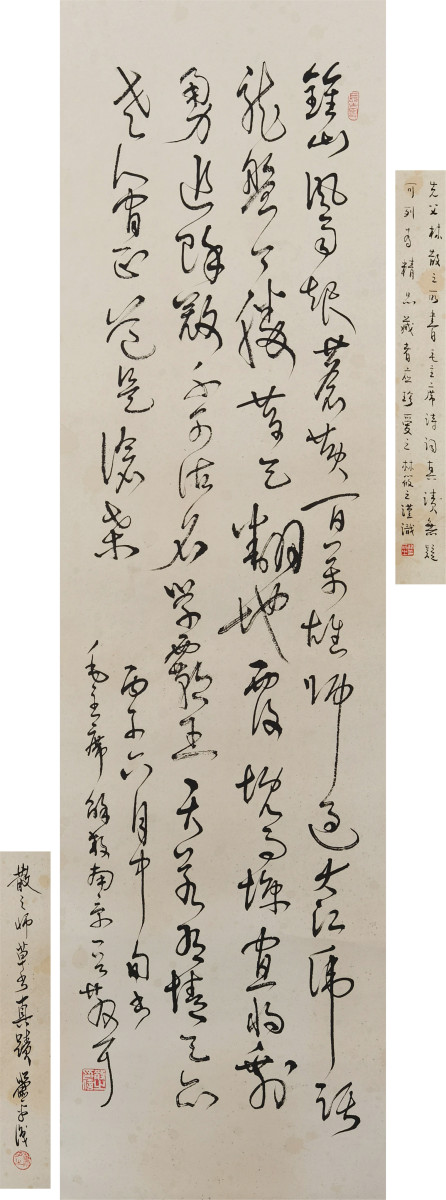 先父林散之所書毛主席詩詞真蹟無疑
可列為精品藏者應珍愛之林筱之謹識
鍾山風雨起蒼黄百萬雄師過大江虎踞
龍盤今勝昔天翻地覆慨而慷宜將剩
勇追餘寇不可沽名學霸王天若有情天亦
老人間正道是滄桑
丙午六月中旬書
毛主席解放南京一首 散耳
散之師草書真蹟